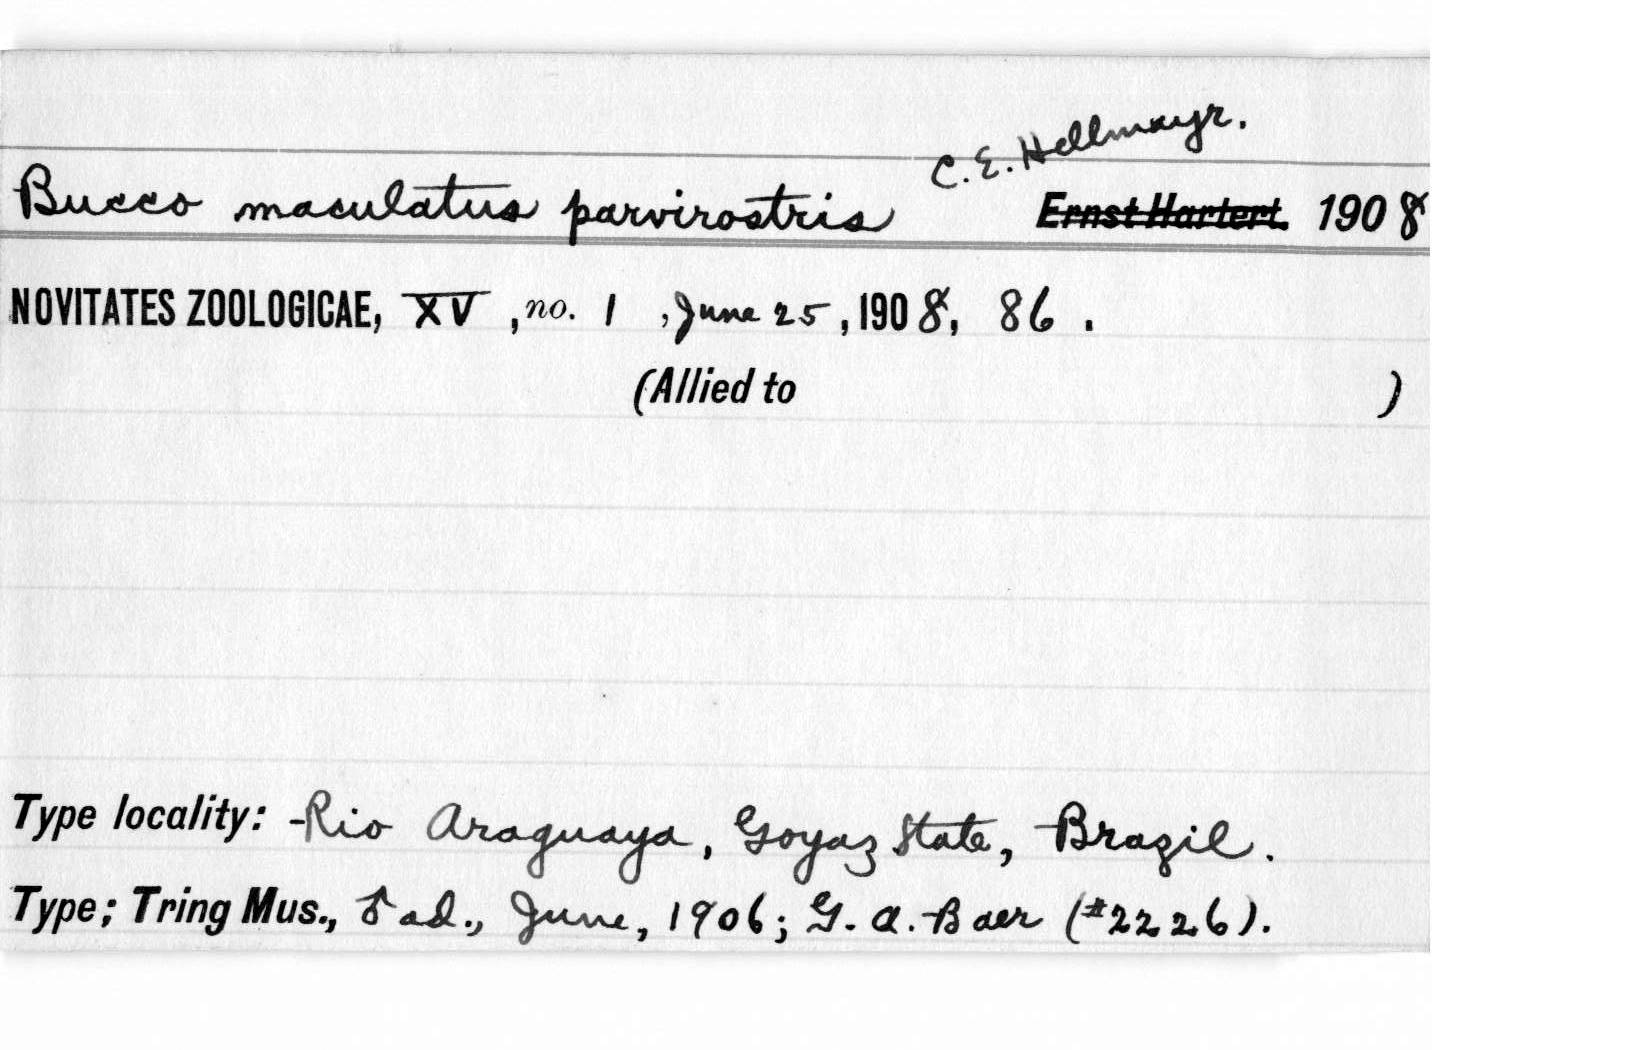 C. E. Hellmayr.
Bucco maculatus parvirostris Ernst Hartert. 1908
NOVITATES ZOOLOGICAE, XV, no. 1, June 25, 1908, 86.
(Allied to )
Type locality: Rio Araguaya, Goyaz State, Brazil.
Type; Tring Mus., ♂ ad., June, 1906; G. A. Baer (#2226).